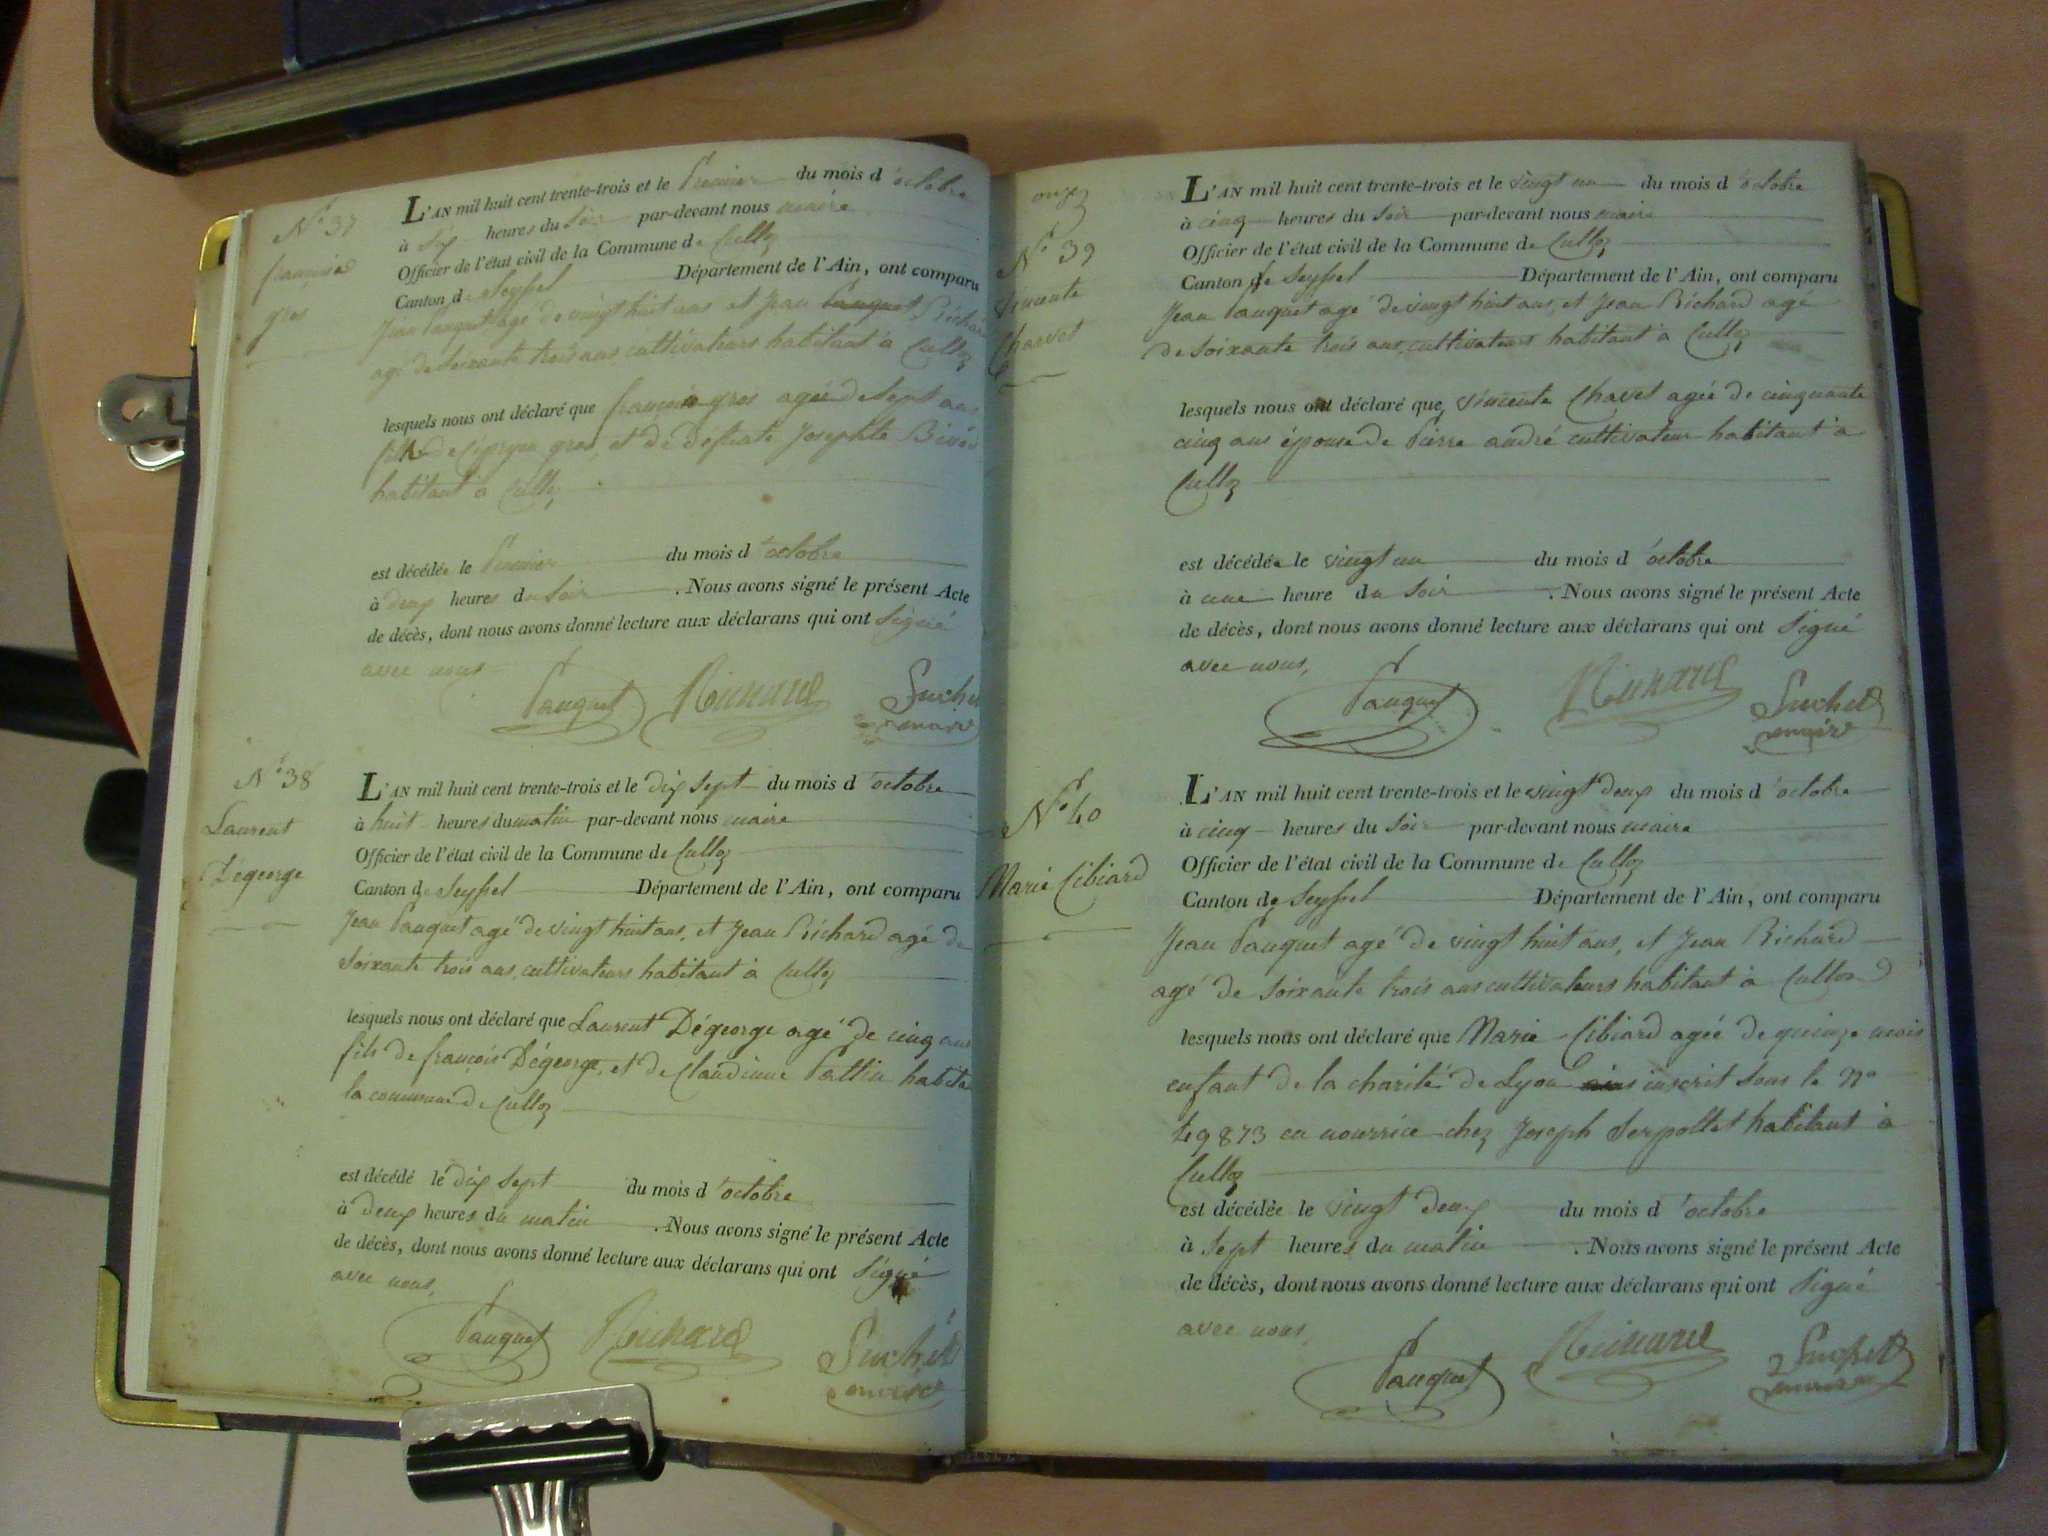 N° 37
françoise
gros
L'AN mil huit cent trente-trois et le Premier du mois d'octobre
à Six heures du soir par-devant nous maire
Officier de l'état civil de la Commune de Culloz
Canton de Seyssel Département de l'Ain, ont comparu
Jean Pauquet agé de vingt huit ans et Jean Pauquet Richard
agé de Soixante trois ans cultivateurs habitant à Culloz
lesquels nous ont déclaré que françoise gros agée de Sept ans
fille de gros, et de défunte Josephte
habitant à Culloz
est décédée le Premier du mois d'octobre
à deux heures du soir. Nous avons signé le présent Acte
de décès, dont nous avons donné lecture aux déclarans qui ont Signé
avec nous
Pauquet Richard Suchet
maire
N° 38
Laurent
Dégeorge
L'AN mil huit cent trente-trois et le dix sept du mois d'octobre
à huit heures du matin par-devant nous maire
Officier de l'état civil de la Commune de Culloz
Canton de Seyssel Département de l'Ain, ont comparu
Jean Pauquet agé de vingt huit ans, et Jean Richard agé de
Soixante trois ans, cultivateurs habitant à Culloz
lesquels nous ont déclaré que Laurent Dégeorge agé de cinq ans
fils de françois Dégeorge, et de Claudinne Pattin habita
la commune de Culloz
est décédé le dix sept du mois d'octobre
à deux heures du matin. Nous avons signé le présent Acte
de décès, dont nous avons donné lecture aux déclarans qui ont Signé
avec nous,
Pauquet Richard Suchet
maire
onze
N° 39
Vincente
Chavet
L'AN mil huit cent trente-trois et le vingt un du mois d'octobre
à cinq heures du Soir par-devant nous maire
Officier de l'état civil de la Commune de Culloz
Canton de Seyssel Département de l'Ain, ont comparu
Jean Pauquet agé de vingt huit ans, et Jean Richard agé
de Soixante trois ans, cultivateurs habitant à Culloz
lesquels nous ont déclaré que Vincente Chavet agée de cinquante
cinq ans épouse de Pierre andré cultivateur habitant à
Culloz
est décédée le vingt un du mois d'octobre
à une heure du Soir. Nous avons signé le présent Acte
de décès, dont nous avons donné lecture aux déclarans qui ont Signé
avec nous,
Pauquet Richard Suchet
maire
N° 40
Marie Cibiard
L'AN mil huit cent trente-trois et le vingt deux du mois d'octobre
à cinq heures du Soir par-devant nous maire
Officier de l'état civil de la Commune de Culloz
Canton de Seyssel Département de l'Ain, ont comparu
Jean Pauquet agé de vingt huit ans, et Jean Richard
agé de Soixante trois ans cultivateurs habitant à Culloz
lesquels nous ont déclaré que Marie Cibiard agée de quinze mois
enfant de la charité de Lyon inscrit Sous le N°
49873 en nourrice chez Joseph Serpollet habitant à
Culloz
est décédée le vingt deux du mois d'octobre
à Sept heures du matin. Nous avons signé le présent Acte
de décès, dont nous avons donné lecture aux déclarans qui ont Signé
avec nous,
Pauquet Richard Suchet
maire